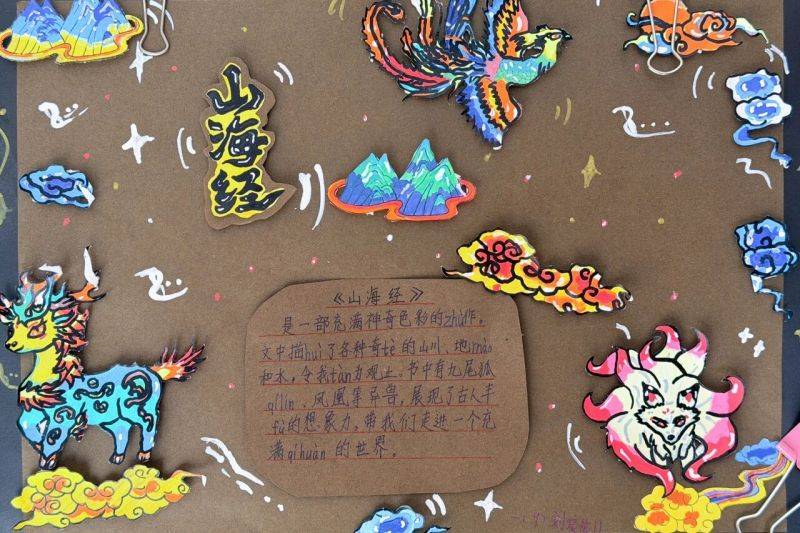 山海经
《山海经》
是一部充满神奇色彩的zhù作。
文中描huì了各种奇tè的山川、地mào
和水，令我tàn为观止。书中有九尾狐
qílín、凤凰等异兽，展现了古人丰
fù的想象力，带我们走进一个充
满qíhuàn 的世界。